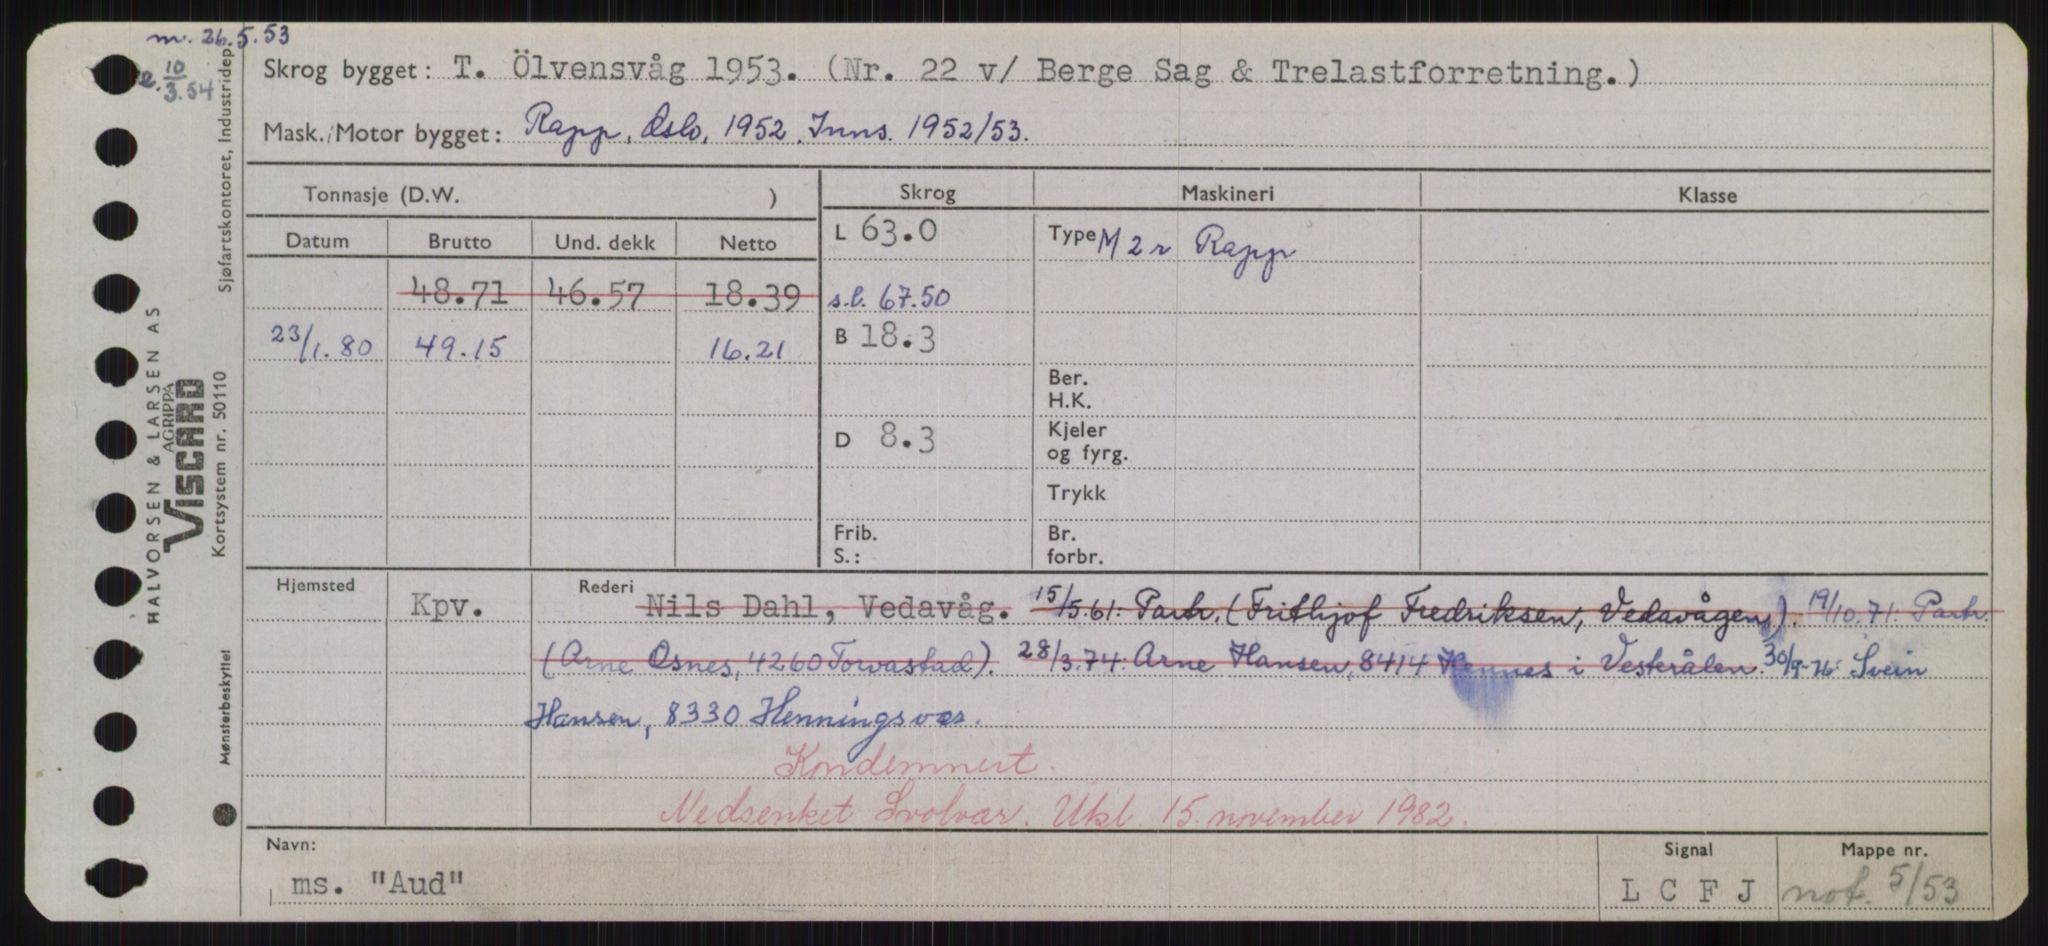 m. 26.5.53
e. 10/3.54
Skrog bygget: T. Ölvensvåg 1953. (Nr. 22 v/ Berge Sag & Trelastforretning.)
Mask./Motor bygget: Rapp, Oslo, 1952. Inns. 1952/53.
Tonnasje (D.W. ) Skrog Maskineri Klasse
Datum Brutto Und. dekk Netto L 63.0 Type M 2 r Rapp
48.71 46.57 18.39 s.l. 67.50
23/1.80 49.15 16.21 B 18.3
Ber.
H.K.
D 8.3 Kjeler
og fyrg.
Trykk
Frib. Br.
S.: forbr.
Hjemsted Kpv. Rederi Nils Dahl, Vedavåg. 15/5.61: Partr. (Frithjof Fredriksen, Vedavågen). 19/10.71: Partr.
(Arne Osnes, 4260 Torvastad). 28/3.74: Arne Hansen, 8414 Hennes i Vesterålen. 30/9-76: Svein
Hansen, 8330 Henningsvær.
Kondemnert.
Nedsenket Svolvær. Utkl. 15. november 1982.
Navn: Signal Mappe nr.
ms. "Aud" L C F J not. 5/53
Sjøfartskontoret, Industridep
HALVORSEN & LARSEN AS
AGRIPPA
VISCARD
Kortsystem nr. 50110
Mønsterbeskyttet